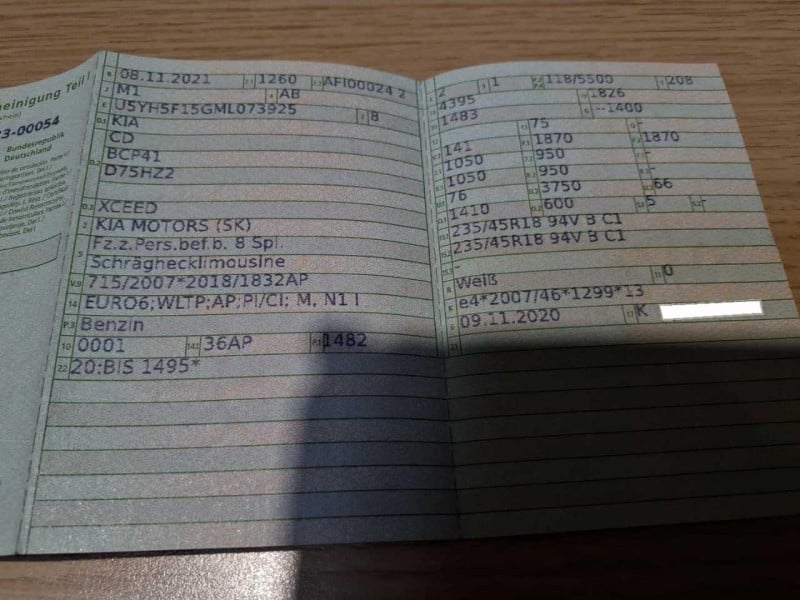 Teil I
3-00054
Bundesrepublik
Deutschland
B 08.11.2021 2.1 1260 2.2 AFI00024 2
J M1 4 AB
E U5YH5F15GML073925 3 8
D.1 KIA
D.2 CD
BCP41
D75HZ2
D.3 XCEED
2 KIA MOTORS (SK)
5 Fz.z.Pers.bef.b. 8 Spl.
Schräghecklimousine
V.9 715/2007*2018/1832AP
14 EURO6;WLTP;AP;PI/CI; M, N1 I
P.3 Benzin
10 0001 14.1 36AP P.1 1482
22 20:BIS 1495*
2 1 118/5500 208
4395 1826
1483 --1400
75 -
141 1870 1870
1050 950 -
1050 950 -
76 3750 66
1410 600 5 -
235/45R18 94V B C1
235/45R18 94V B C1
-
R Weiß 11 0
K e4*2007/46*1299*13
6 09.11.2020 17 K
21